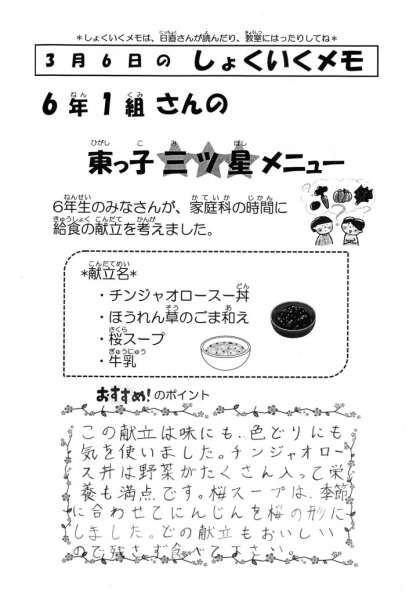 *しょくいくメモは、日直さんが読んだり、教室にはったりしてね*
3月6日の しょくいくメモ
6年1組さんの
東っ子三ツ星メニュー
6年生のみなさんが、家庭科の時間に
給食の献立を考えました。
*献立名*
・チンジャオロースー丼
・ほうれん草のごま和え
・桜スープ
・牛乳
おすすめ!のポイント
この献立は味にも、色どりにも
気を使いました。チンジャオロー
ス丼は野菜がたくさん入って栄
養も満点です。桜スープは、季節
に合わせてにんじんを桜の形に
しました。どの献立もおいしい
ので残さず食べて下さい。